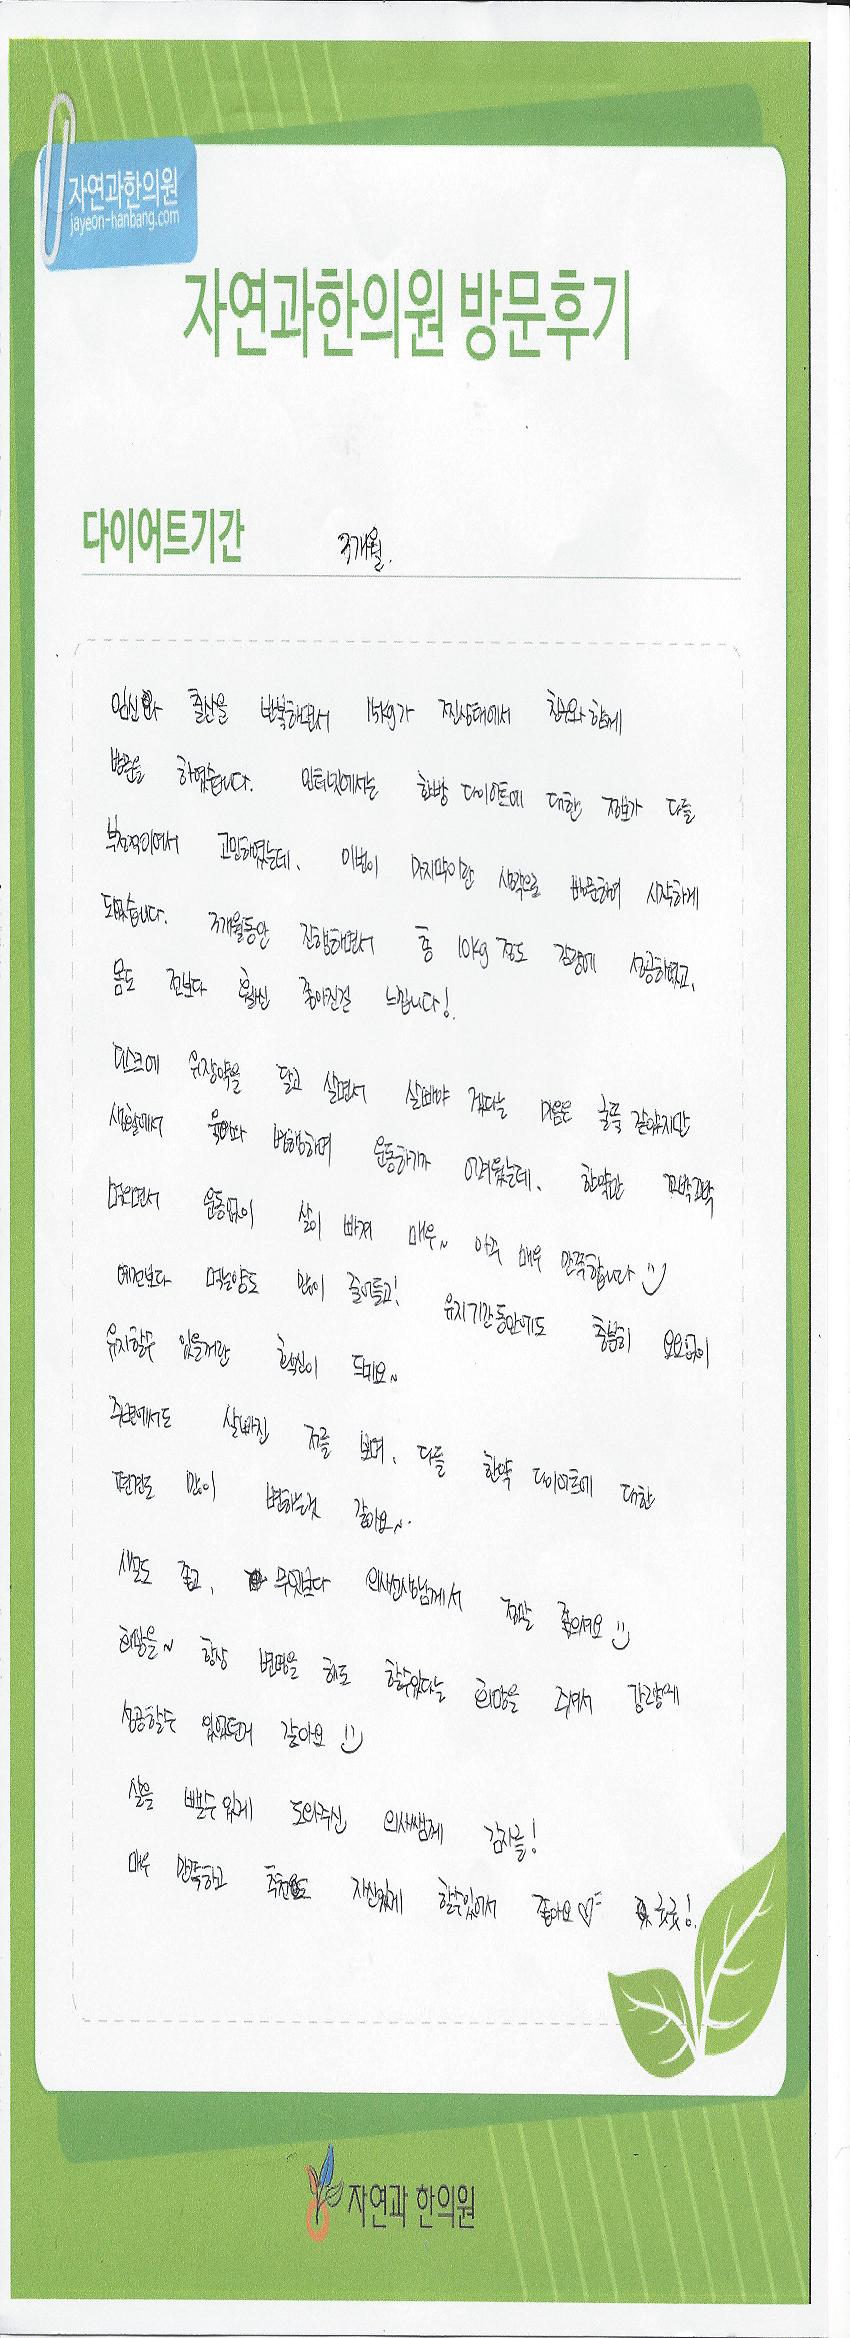 자연과한의원
jayeon-hanbang.com
자연과한의원 방문후기
다이어트기간 3개월.
임신과 출산을 반복하면서 15kg가 찐상태에서 친구와 함께
방문을 하였습니다. 인터넷에서는 한방 다이어트에 대한 정보가 다들
부정적이어서 고민하였는데, 이번이 마지막이란 생각으로 방문하여 시작하게
되었습니다. 3개월동안 진행하면서 총 10kg 정도 감량에 성공하였고,
몸도 전보다 훨씬 좋아진걸 느낍니다!
디스크에 위장약을 달고 살면서 살빼야 겠다는 마음은 굴뚝 같았지만
생활에서 육아와 병행하며 운동하기가 어려웠는데, 한약만 꼬박꼬박
먹으면서 운동없이 살이 빠져 매우~ 아주 매우 만족합니다
예전보다 먹는양도 많이 줄어들고! 유지기간동안에도 충분히 요요없이
유지할수 있을거란 확신이 드네요~
주변에서도 살빠진 저를 보며, 다들 한약 다이어트에 대한
편견도 많이 변하는것 같아요~.
새모도 좋고, 무엇보다 의사선생님께서 정말 좋으셔요
희망을~ 항상 변명을 해도 할수있다는 희망을 주셔서 감량에
성공할수 있었던거 같아요
살을 뺄수있게 도와주신 의사쌤께 감사를!
매우 만족하고 추천도 자신있게 할수있어서 좋아요♡ 굿굿!
자연과 한의원